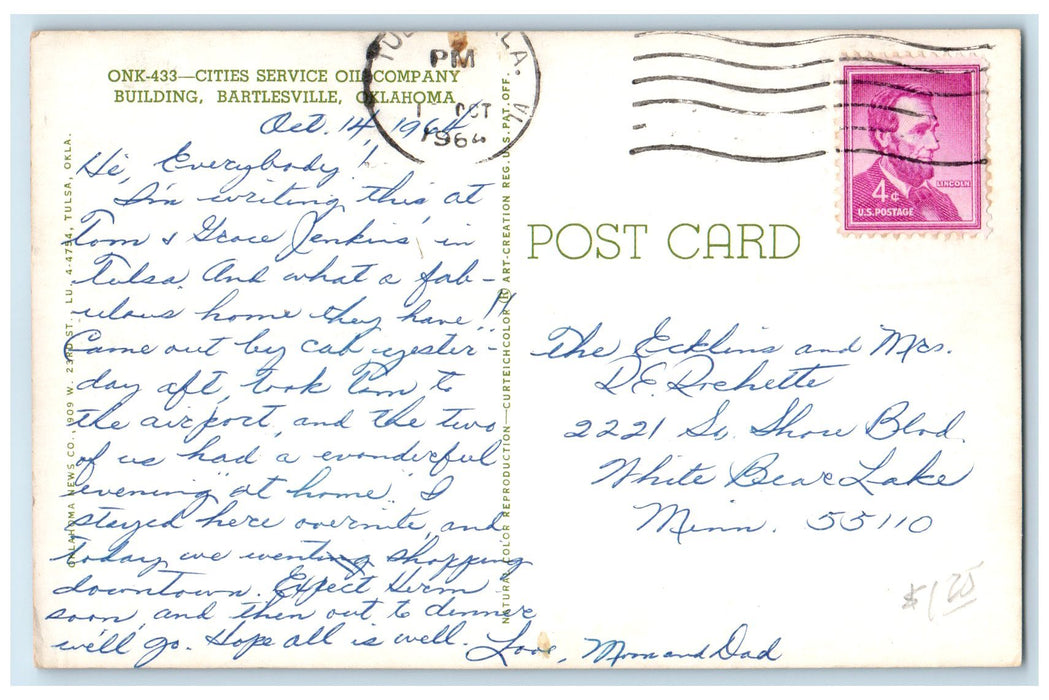 ONK-433—CITIES SERVICE OIL COMPANY
BUILDING, BARTLESVILLE, OKLAHOMA
Oct. 14, 1964
Hi, Everybody!
I'm writing this at
Tom & Grace Jenkins, in
Tulsa. And what a fab-
ulous home they have!!
Came out by cab yester-
day aft, took Tom to
the airport, and the two
of us had a wonderful
evening "at home." I
stayed here overnite, and
today we went shopping
downtown. Expect Herm
soon, and then out to dinner
we'll go. Hope all is well.
Love, Mom and Dad
OKLAHOMA NEWS CO., 1909 W. 23RD ST., LU 4-4754, TULSA, OKLA.
NATURAL COLOR REPRODUCTION—CURTEICHCOLOR ® ART-CREATION REG. U.S. PAT. OFF.
PM
OCT
1964
LINCOLN
4¢
U.S. POSTAGE
POST CARD
The Ecklins and Mrs.
D.E. Rochette
2221 So. Shore Blvd.
White Bear Lake
Minn. 55110